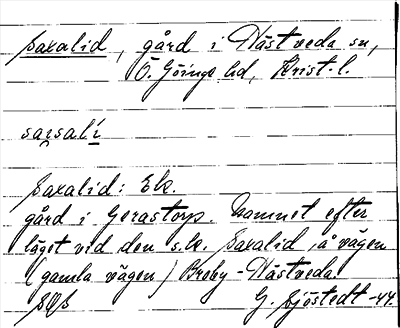 Saxalid, gård i Hästveda sn,
Ö. Göinge hd, Krist. l.
saxsali
Saxalid: Ek.
gård i Gerastorp. Namnet efter
läget vid den s.k. Saxalid, å vägen
(gamla vägen) Broby–Hästveda
G. Sjöstedt -44.